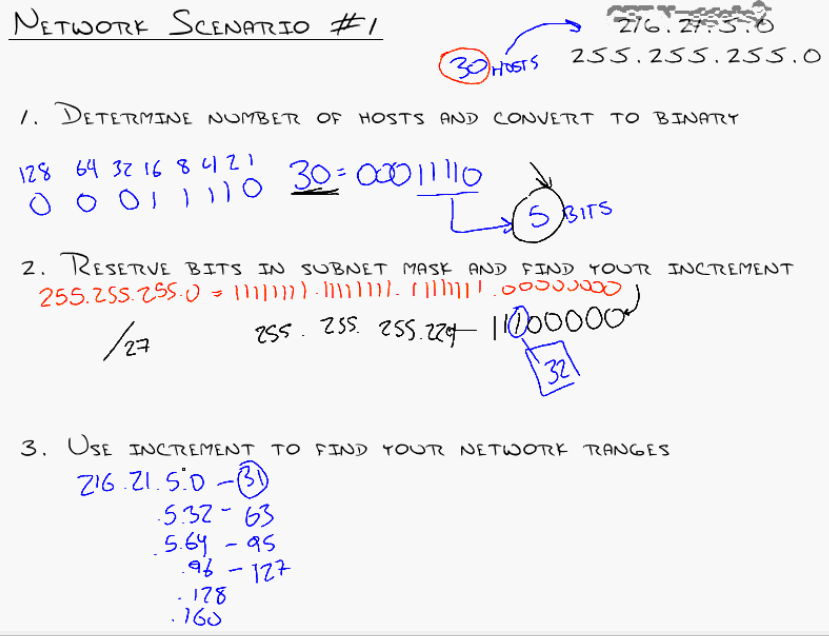 NETWORK SCENARIO #1
216.21.5.0
30 HOSTS
255.255.255.0
1. DETERMINE NUMBER OF HOSTS AND CONVERT TO BINARY
128 64 32 16 8 4 2 1
0 0 0 1 1 1 1 0
30 = 00011110
5 BITS
2. RESERVE BITS IN SUBNET MASK AND FIND YOUR INCREMENT
255.255.255.0 = 11111111.11111111.11111111.00000000
/27 255.255.255.224 11100000
32
3. USE INCREMENT TO FIND YOUR NETWORK RANGES
216.21.5.0 - 31
.5.32 - 63
.5.64 - 95
.96 - 127
.128
.160